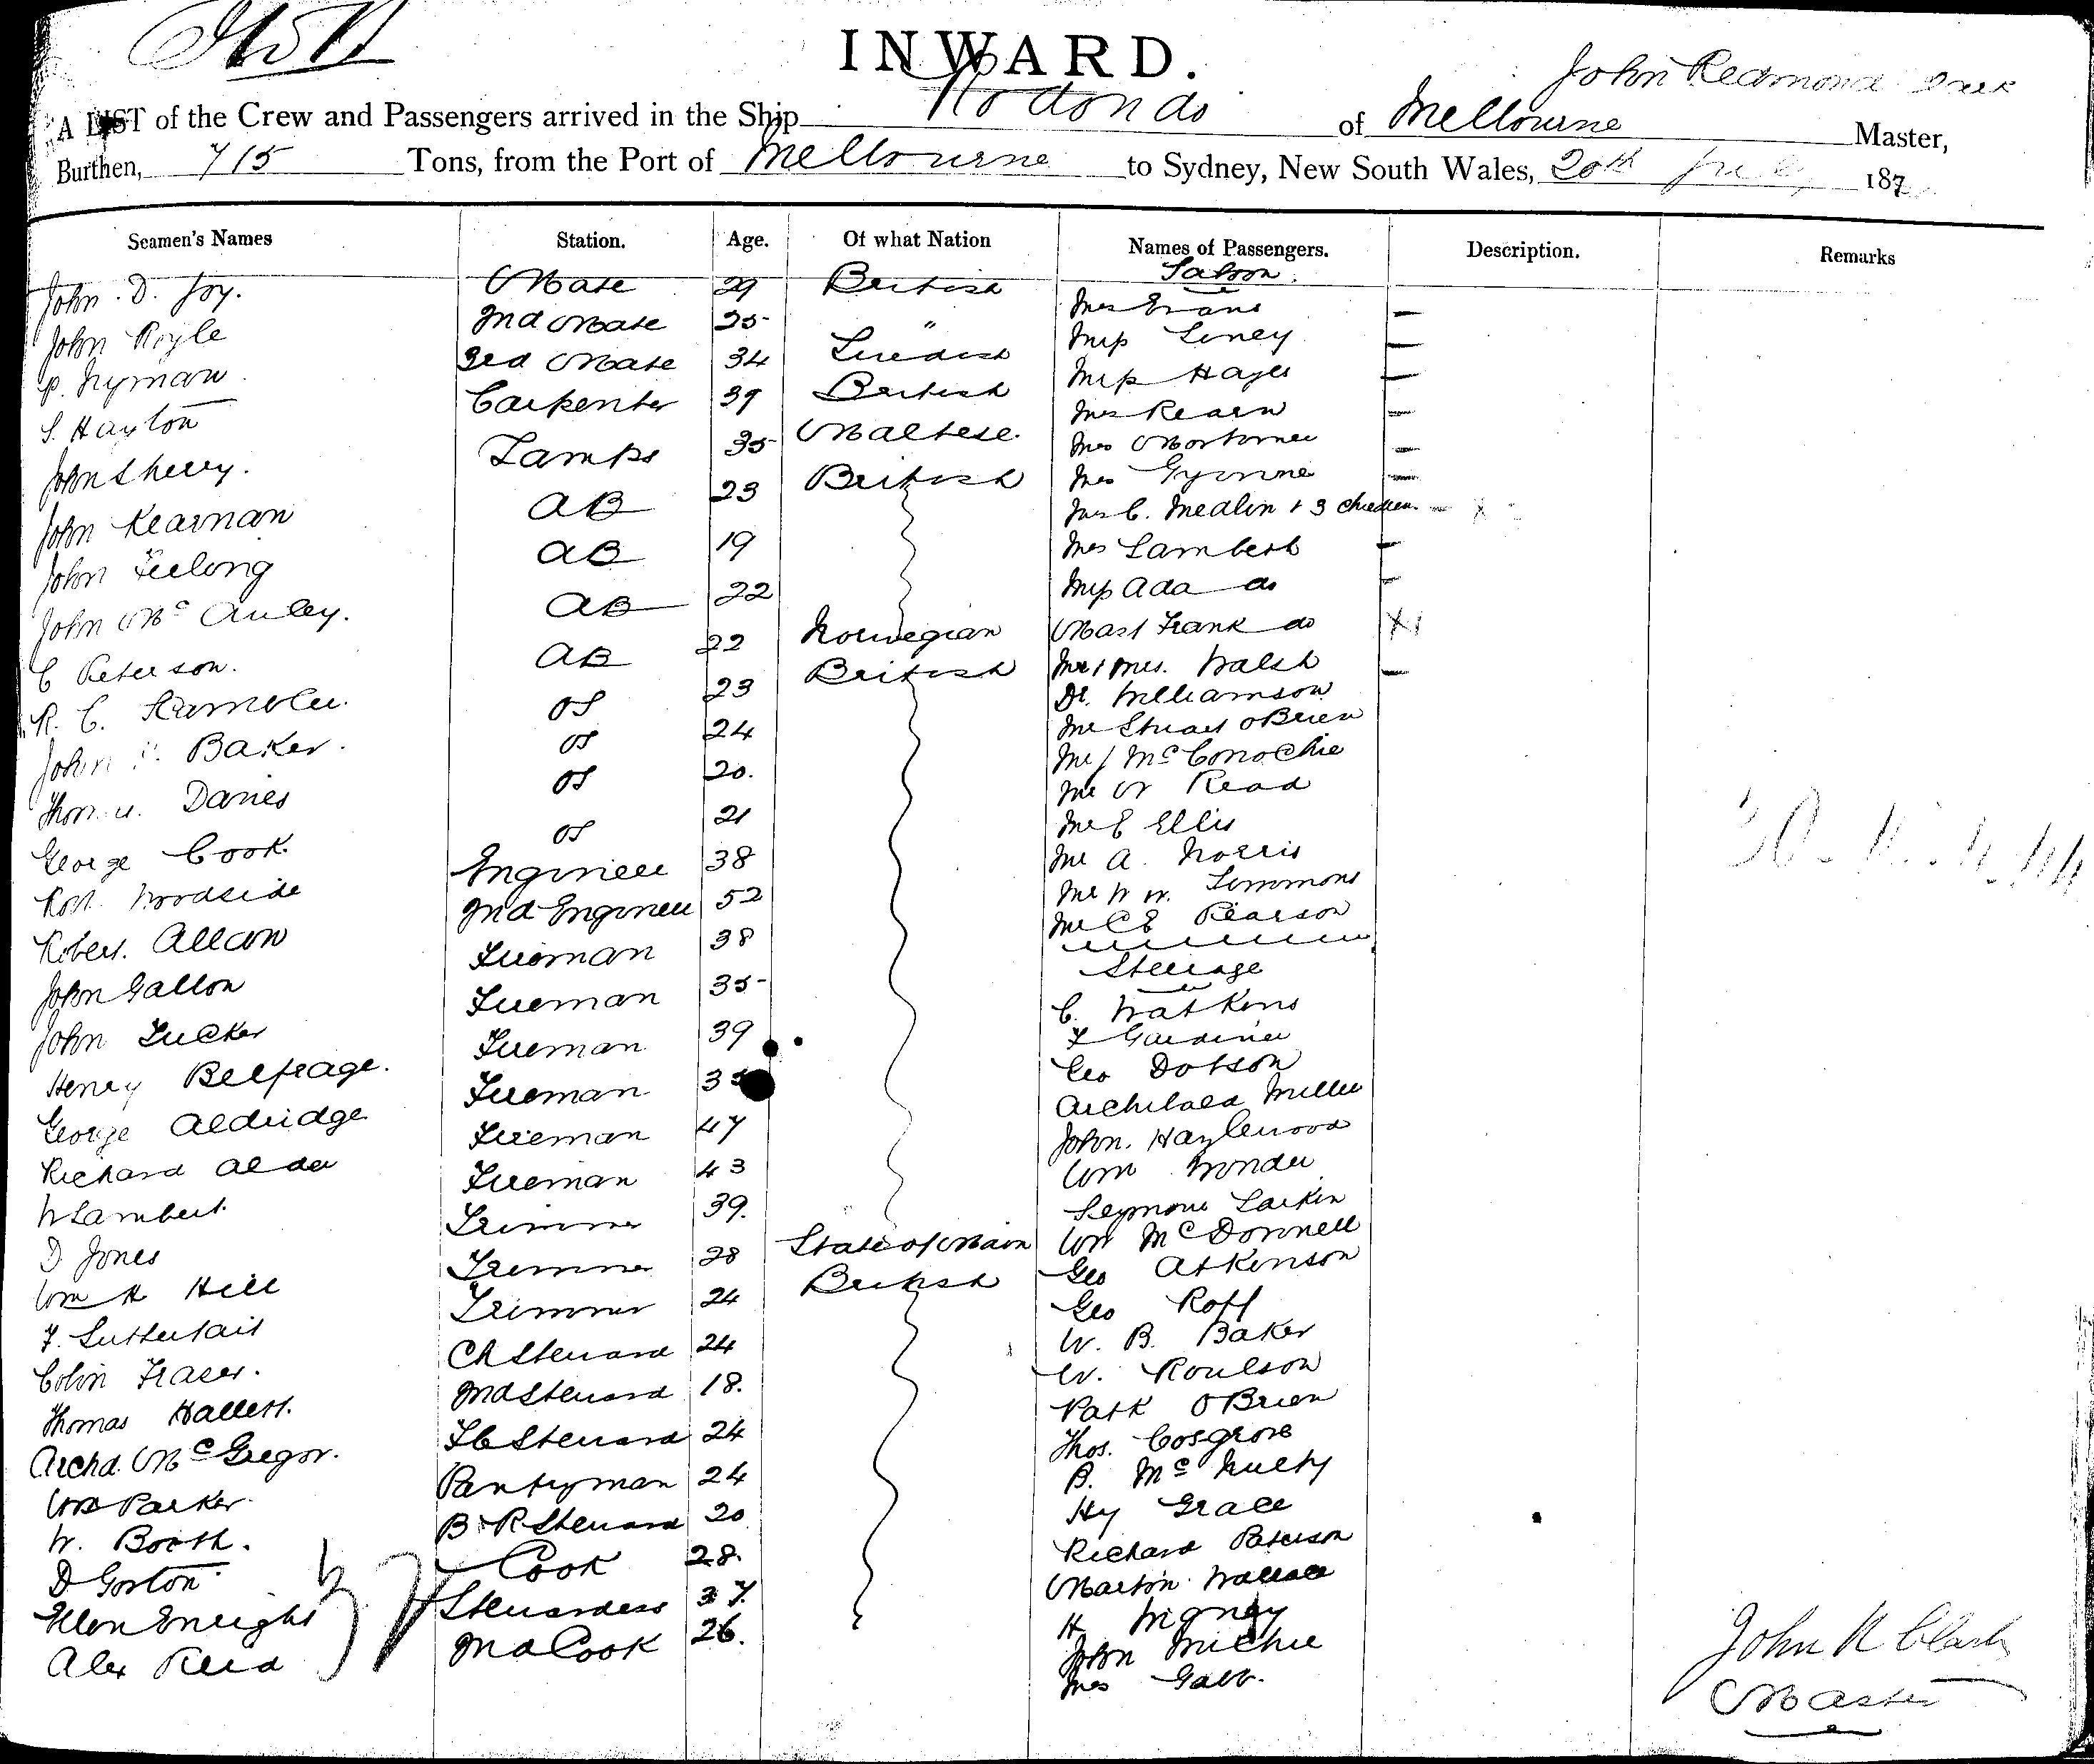 INWARD.
John Redmond Clark
A LIST of the Crew and Passengers arrived in the Ship Rodondo of Melbourne Master,
Burthen, 715 Tons, from the Port of Melbourne to Sydney, New South Wales, 20th July 187
Seamen's Names Station. Age. Of what Nation Names of Passengers. Description. Remarks
Saloon
John D. Joy. Mate 29 British Mrs Evans —
John Royle 2nd Mate 25 " Miss Liney —
P. Nyman 3rd Mate 34 Swedish Miss Hayes —
S. Hayton Carpenter 39 British Mrs Kearn —
John Sherry. Lamps 35 Maltese. Mrs Mortimer —
John Kearnan AB 23 British Mrs Gwynne —
John Feelong AB 19 Mrs C. Medlin & 3 Children — x
John McAuley. AB 22 Mrs Lambert —
C Peterson. AB 22 Norwegian Miss Ada do —
R. C. OS 23 British Mast Frank do X
John Baker. OS 24 Mr & Mrs. Walsh —
Thom Davies OS 20. Dr. Williamson
George Cook. OS 21 Mr Stuart OBrien
Robt. Woodside Engineer 38 Mr J McConochie
Robert. Allan 2nd Engineer 52 Mr W Read
John Gallon Fireman 38 Mr E Ellis
John Tucker Fireman 35 Mr A. Norris
Henry Belfrage. Fireman 39 Mr W W. Simmons
George Aldridge Fireman 35 Mr C E Pearson
Richard Alder Fireman 47 Steerage
W Lambert. Fireman 43 C. Watkins
D Jones Trimmer 39. F Gardiner
Wm H Hill Trimmer 28 State of Main Geo Dobson
F. Sutherland Trimmer 24 British Archibald Miller
Colin Fraser. Ch Steward 24 John. Hazlewood
Thomas Hallett. 2nd Steward 18. Wm Wonder
Archd. McGregor. F C Steward 24 Seymour Larkin
Wm Parker Pantryman 24 Wm McDonnell
W. Booth. B R Steward 20 Geo Atkinson
D Gorton Cook 28. Geo Roff
Ellen Enright Stewardess 37. W. B. Baker
Alex Reid 2nd Cook 26. W. Roulson
Patk OBrien
Thos. Cosgrove
B. McNulty
Hy Grace
Richard Paterson
Martin Wallace
H Wigney
John Michie
Mrs Gabb.
John R Clark
Master